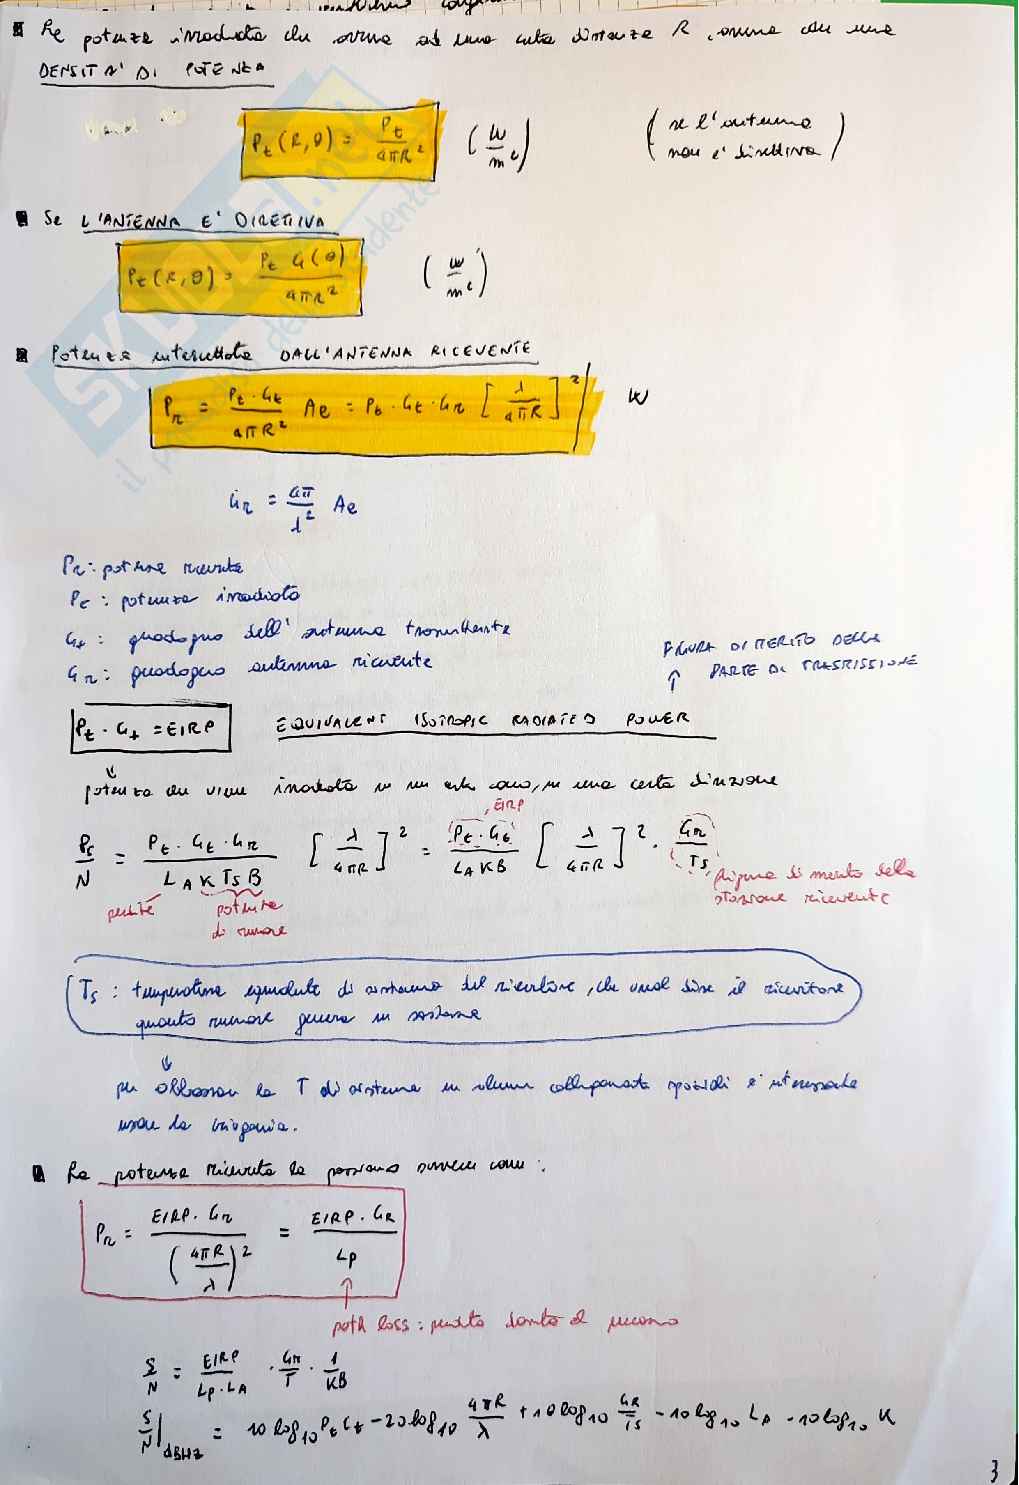 La potenza irradiata che arriva ad una certa distanza R, arriva con una
DENSITA' DI POTENZA
Pt (R, θ) = Pt / 4πR² (W/m²) (se l'antenna non e' direttiva)
Se L'ANTENNA E' DIRETTIVA
Pt (R, θ) = Pt G(θ) / 4πR² (W/m²)
Potenza intercettata DALL'ANTENNA RICEVENTE
Pr = Pt · Gt / 4πR² Ae = Pt · Gt · Gr [λ / 4πR]² W
Gr = 4π / λ² Ae
Pr: potenza ricevuta
Pt: potenza irradiata
Gt: guadagno dell'antenna trasmittente
Gr: guadagno antenna ricevente
FIGURA DI MERITO DELLA
↑ PARTE DI TRASMISSIONE
Pt · Gt = EIRP EQUIVALENT ISOTROPIC RADIATED POWER
⇓
potenza che viene irradiata in un certo cono, in una certa direzione
EIRP
Pr / N = Pt · Gt · Gr / LA K TS B [λ / 4πR]² = Pt · Gt / LA KB [λ / 4πR]² · Gr / TS
perdite
potenza di rumore
figura di merito della
stazione ricevente
TS : temperatura equivalente di sistema del ricevitore, che vuol dire il ricevitore
quanto rumore genera in sistema
⇓
per abbassare la T di sistema in alcuni collegamenti spaziali e' interessante
usare la criogenia.
La potenza ricevuta la possiamo scrivere come:
Pr = EIRP · Gr / (4πR / λ)² = EIRP · GR / LP
↑
path loss: perdita dovuta al percorso
S / N = EIRP / LP · LA · Gr / T · 1 / KB
S / N |dBHz = 10 log10 Pt Gt - 20 log10 4πR / λ + 10 log10 GR / TS - 10 log10 LA - 10 log10 K
3